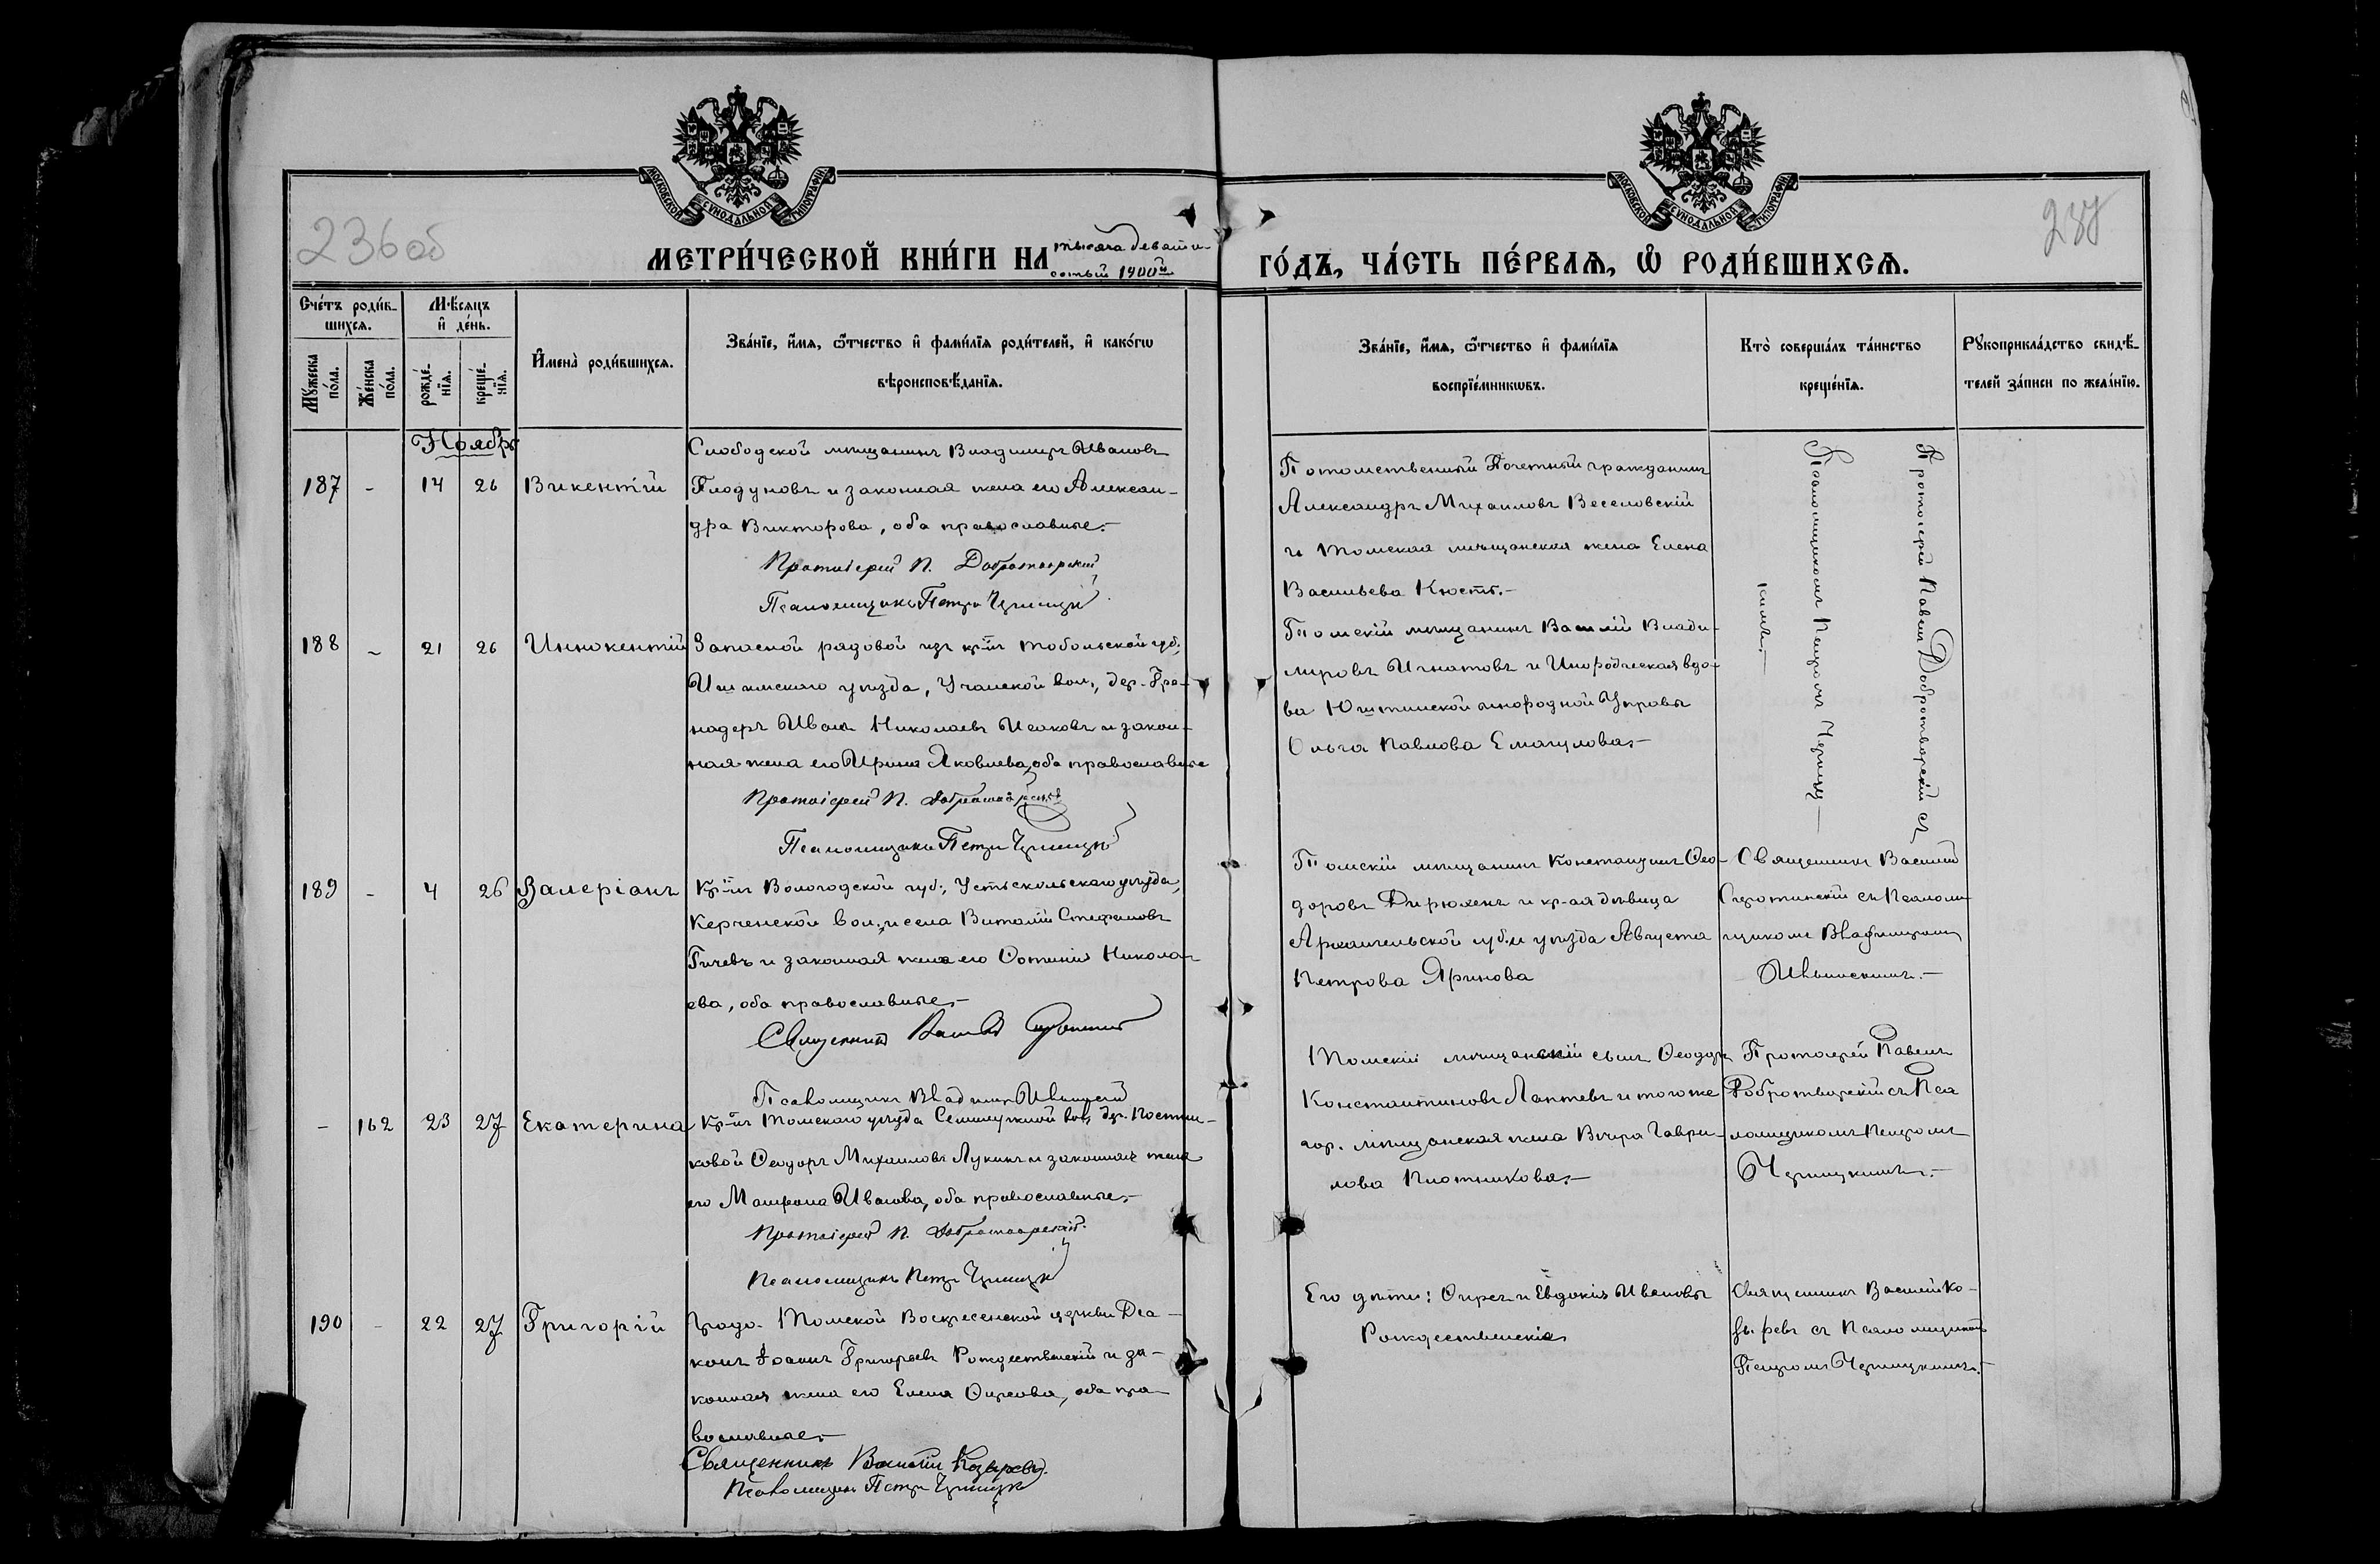 236об
237
МОСКОВСКОЙ СѴНОДАЛЬНОЙ ТИПОГРАФІИ
МОСКОВСКОЙ СѴНОДАЛЬНОЙ ТИПОГРАФІИ
МЕТРИ́ЧЕСКОЙ КНИ́ГИ НА тысяча девяти-
сотый 1900й
ГО́ДЪ, ЧА́СТЬ ПЕ́РВАѦ, Ѡ РОДИ́ВШИХСѦ.
Сче́тъ роди́в-
шихсѧ.
Мѣ́сѧцъ
и҆ де́нь.
Мꙋжеска по́ла.
Же́нска по́ла.
рожде́-нїѧ.
креще́-нїѧ.
И҆мена̀ роди́вшихсѧ.
Зва́нїе, и҆́мѧ, ѻ҆́тчество и҆ фами́лїѧ роди́телей, и҆ како́гѡ
вѣроисповѣ́данїѧ.
Зва́нїе, и҆́мѧ, ѻ҆́тчество и҆ фами́лїѧ
воспрїе́мникѡвъ.
Кто̀ соверша́лъ та́инство
креще́нїѧ.
Рꙋкоприкла́дство свидѣ́-
телей за́писи по жела́нїю.
Ноябрь
187 - 14 26 Викентій
Слободской мѣщанинъ Владиміръ Ивановъ
Плодуновъ и законная жена его Алексан-
дра Викторова, оба православные.-
Протоіерей П. Добротворскій
Псаломщикъ Петръ
Потомственный Почетный гражданинъ
Александръ Михаиловъ Веселовскій
и Томская мѣщанская жена Елена
Васильева Кюстъ.-
Протоіерей Павелъ Добротворскій съ
Псаломщикомъ Петромъ
188 - 21 26 Иннокентій
Запасной рядовой изъ кр-нъ Тобольской губ.,
Ишимскаго уѣзда, Учанской вол., дер. Гре-
надеръ Иванъ Николаевъ Исаковъ и закон-
ная жена его Ирина Яковлева, оба православные
Протоіерей П. Добротворскій
Псаломщикъ Петръ
Томскій мѣщанинъ Василій Влади-
міровъ Игнатовъ и Инородческая вдо-
ва инородной Управы
Ольга Павлова
189 - 4 26 Валеріанъ
Кр-нъ Вологодской губ., Устьсысольскаго уѣзда,
Керченской вол. и села Виталій Стефановъ
Гичевъ и законная жена его Николa-
ева, оба православные.-
Священникъ Василій
Псаломщикъ Владиміръ
Томскій мѣщанинъ Константинъ Ѳео-
доровъ и кр-ая дѣвица
Архангельской губ. и уѣзда Августа
Петрова
Священникъ Василій
съ Псалом-
щикомъ Владиміромъ
- 162 23 27 Екатерина
Кр-нъ Томскаго уѣзда Семилужной вол. дер. Постни-
ковой Ѳеодоръ Михаиловъ Лукинъ и законная жена
его Матрона Иванова, оба православные.-
Протоіерей П. Добротворскій.
Псаломщикъ Петръ
Томскій мѣщанскій сынъ Ѳеодоръ
Константиновъ Лаптевъ и того же
гор. мѣщанская жена Вѣра Гаври-
лова Плотникова.-
Протоіерей Павелъ
Добротворскій съ Пса-
ломщикомъ Петромъ
190 - 22 27 Григорій
Градо-Томской Воскресенской церкви Діа-
конъ Іоаннъ Григорьевъ Рождественскій и за-
конная жена его Елена оба пра-
вославные.-
Священникъ Василій Козыревъ.
Псаломщикъ Петръ
Его дѣти: и Евдокія Ивановы
Рождественскіе
Священникъ Василій Ко-
зыревъ съ Псаломщикомъ
Петромъ